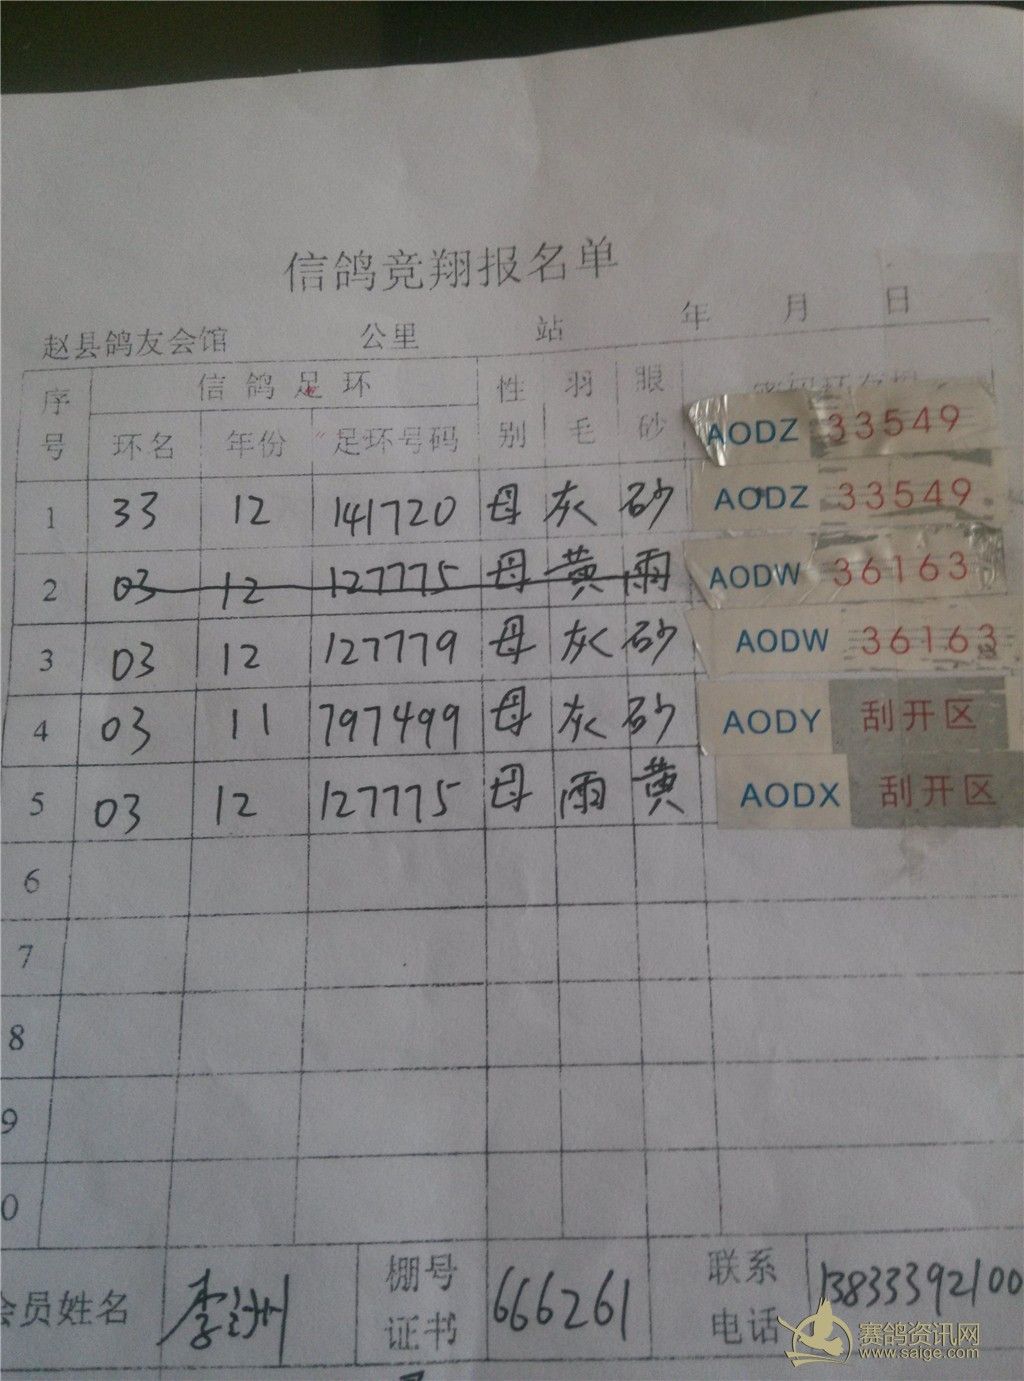 信鸽竞翔报名单
赵县鸽友会馆 公里 站 年 月 日
序号 信鸽足环 性别 羽毛 眼砂
环名 年份 足环号码
AODZ 33549
1 33 12 141720 母 灰 砂 AODZ 33549
2 03 12 127775 母 黄 雨 AODW 36163
3 03 12 127779 母 灰 砂 AODW 36163
4 03 11 797499 母 灰 砂 AODY 刮开区
5 03 12 127775 母 雨 黄 AODX 刮开区
6
7
8
9
0
会员姓名 李 棚号证书 666261 联系电话 13833392100
赛鸽资讯网
www.saige.com